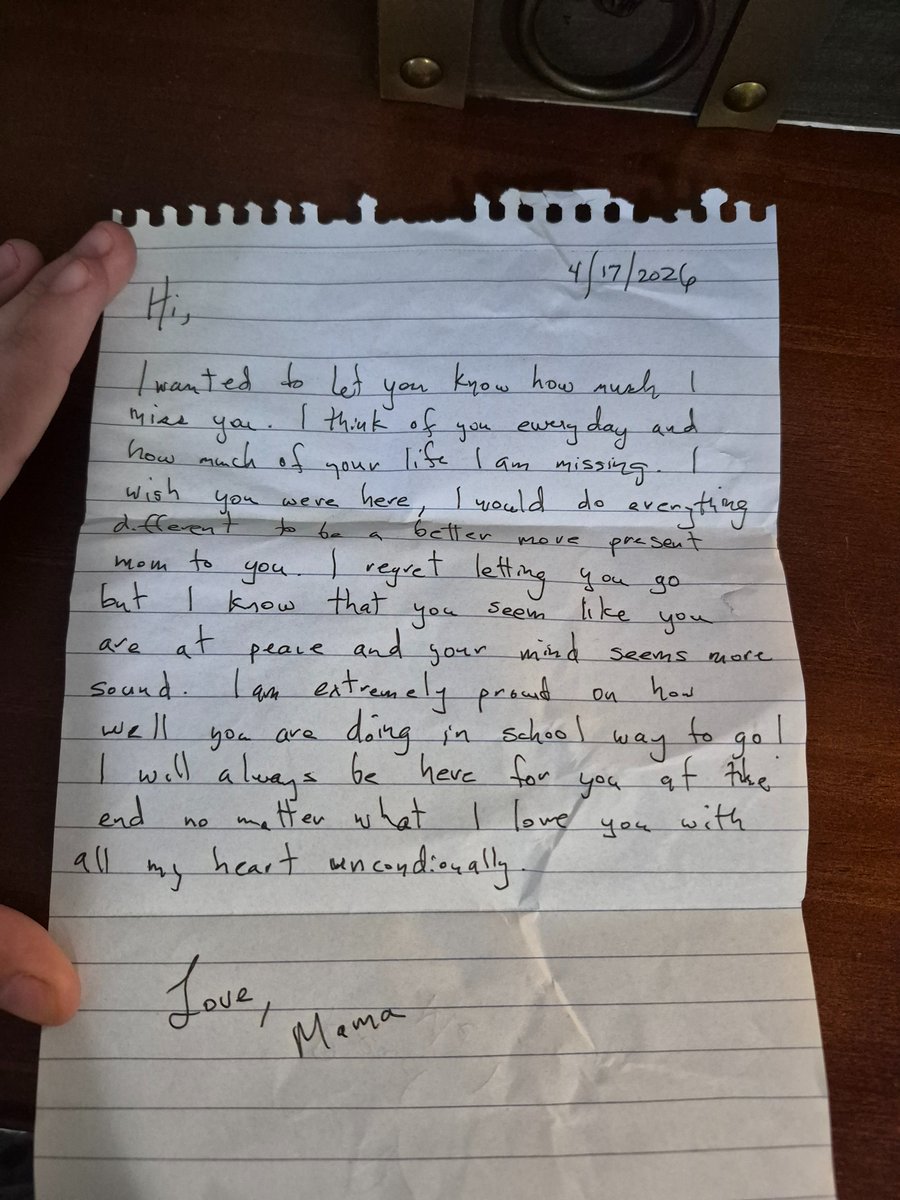 4/17/2026
Hi,
I wanted to let you know how much I
miss you. I think of you everyday and
how much of your life I am missing. I
wish you were here, I would do everything
different to be a better more present
mom to you. I regret letting you go
but I know that you seem like you
are at peace and your mind seems more
sound. I am extremely proud on how
well you are doing in school way to go!
I will always be here for you at the
end no matter what I love you with
all my heart uncondionally.
Love,
Mama